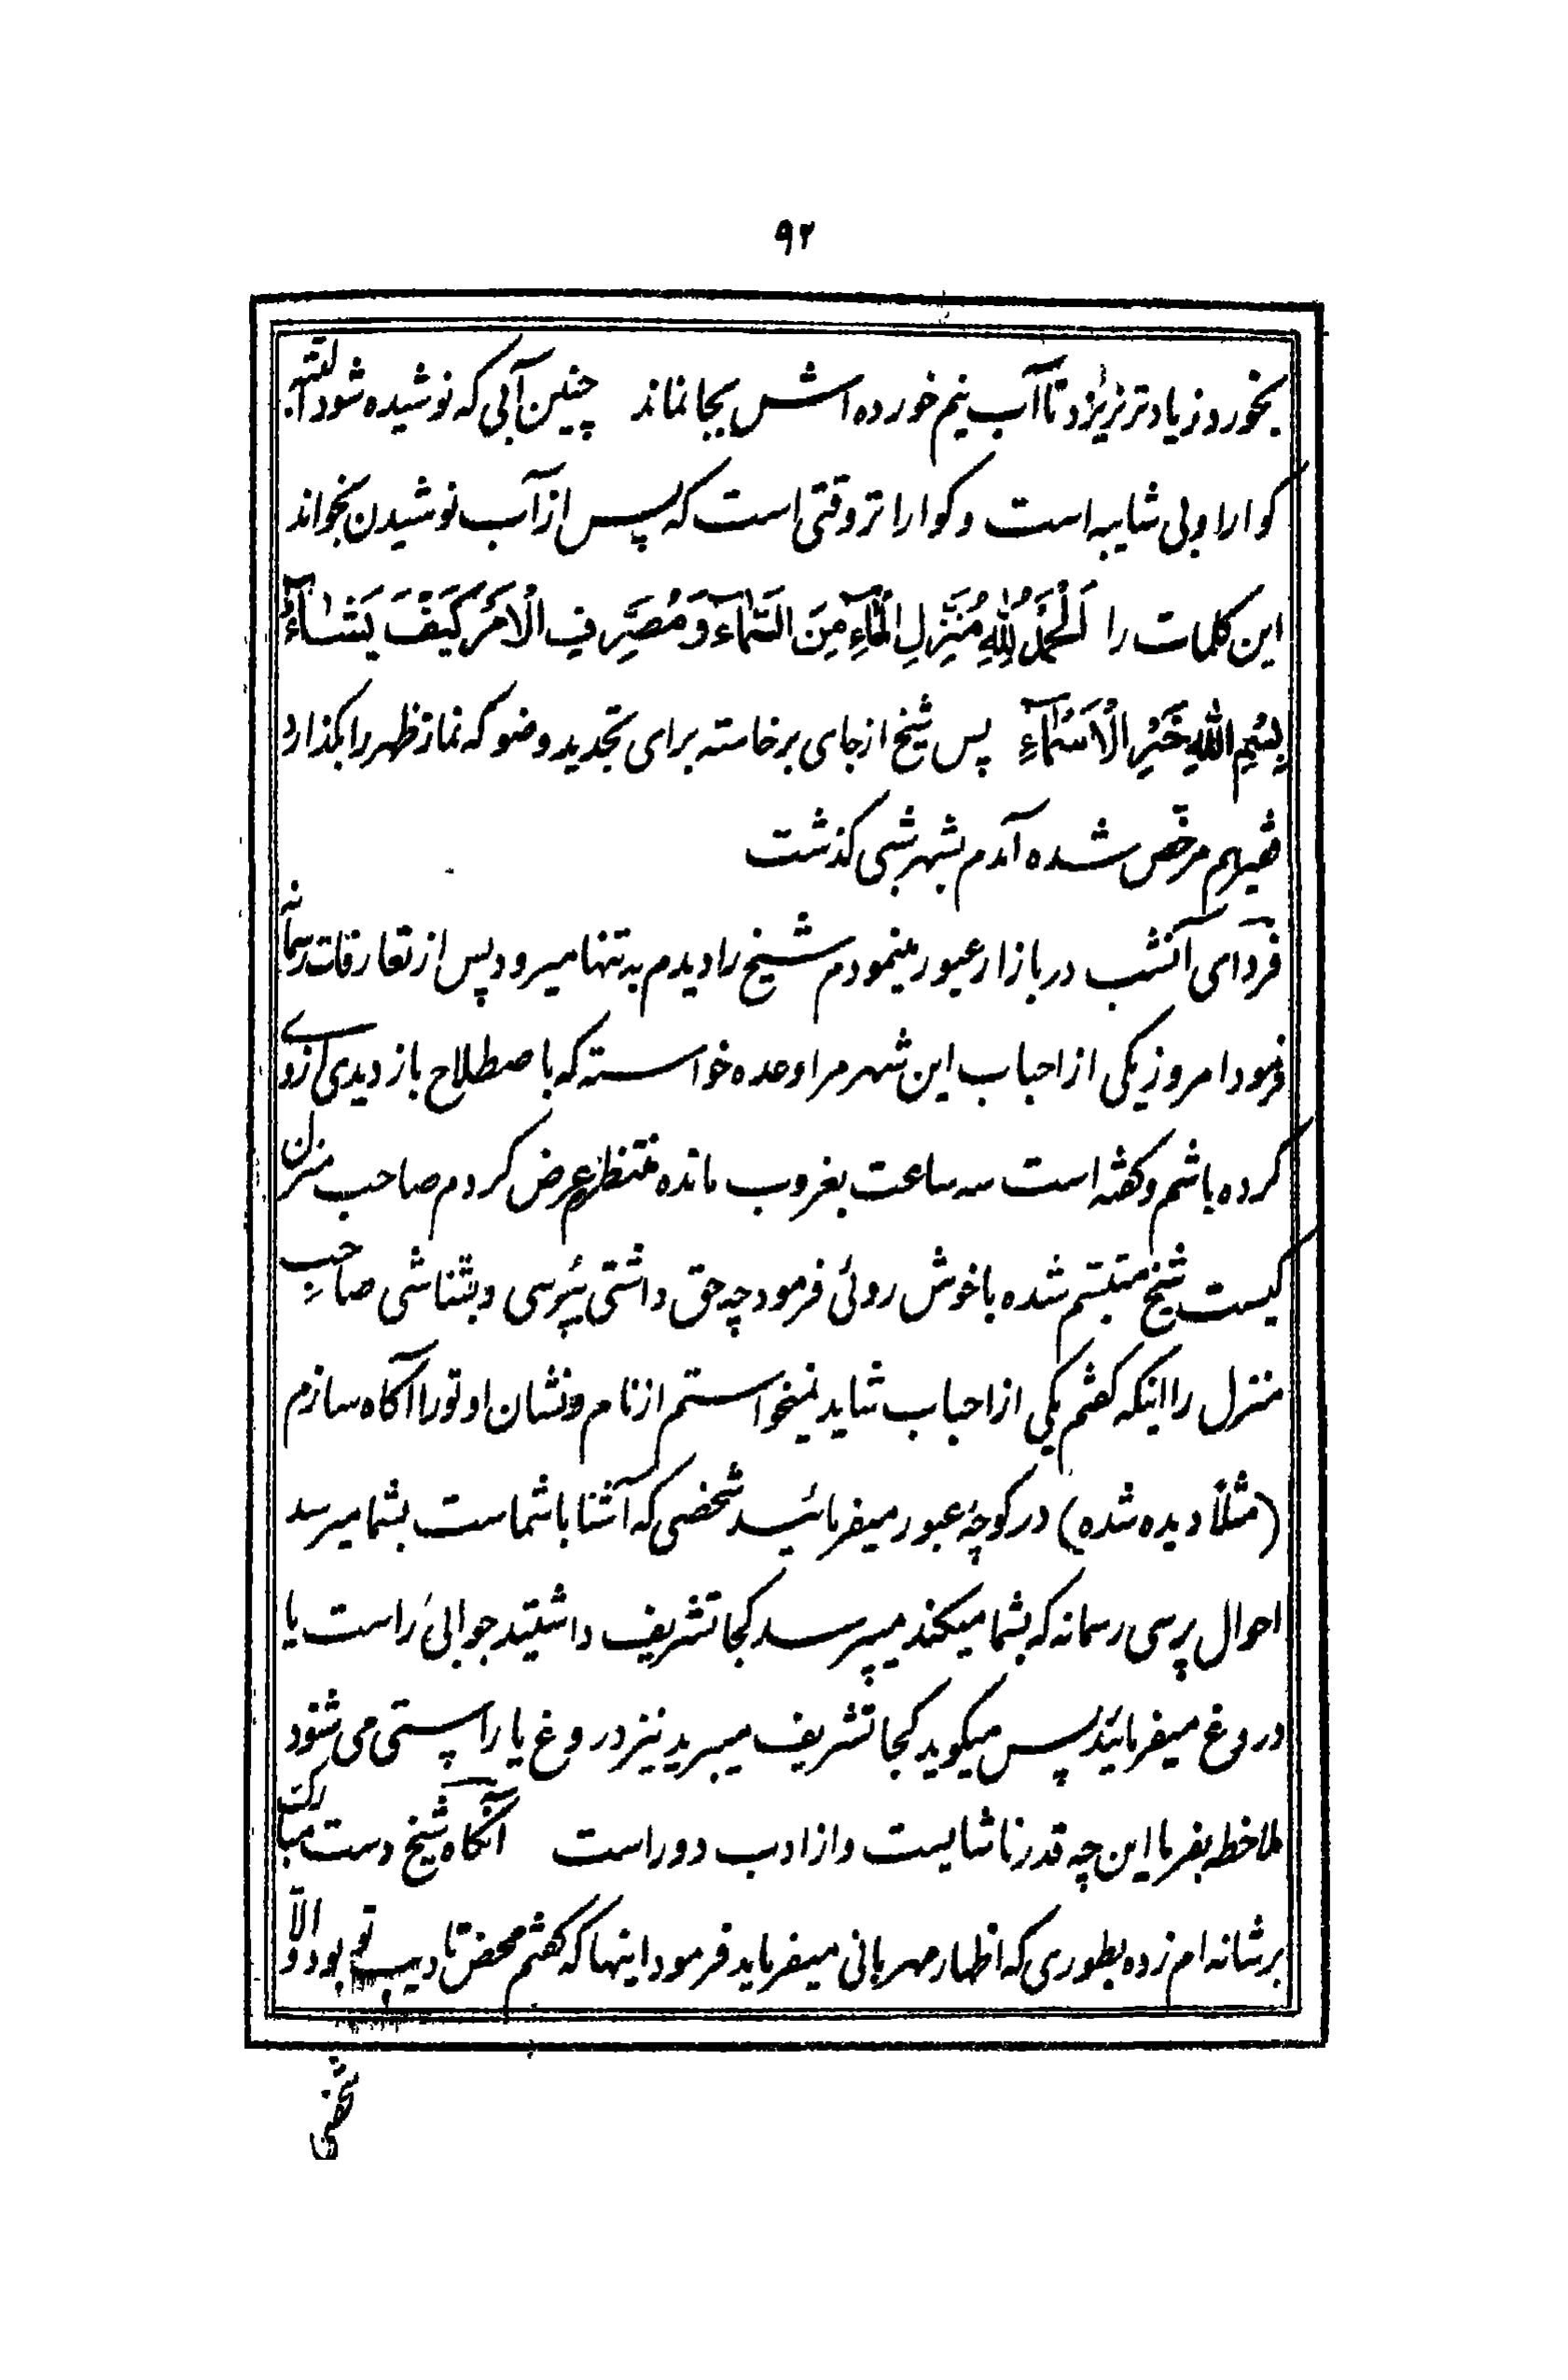 ۹۲
بخورد زیادتر نریزد تا آب نیم خورده اش بجا نماند چنین آبی که نوشیده شود البته
کوارا و بی شایبه است و کواراتر وقتی است که پس از آب نوشیدن بخواند
این کلمات را اَلْحَمْدُ لِلّٰهِ مُنَزِّلِ الْمآءِ مِنَ السَّمٰآءِ وَ مُصَرِّفِ الْاَمْرِ كَيْفَ يَشٰآءُ
بِسْمِ اللّٰهِ خَيْرِ الْاَسْمٰآءِ پس شیخ از جای برخاسته برای تجدید وضو که نماز ظهر را بکذارد
مرخّص شده آمدم بشهر شبی کذشت
فردای آنشب در بازار عبور مینمودم شیخ را دیدم به تنها میرود پس از تعارفات رسمانه
فرمود امروز یکی از احباب این شهر مرا وعده خواسته که باصطلاح بازدیدی از وی
کرده باشم و کفته است سه ساعت بغروب مانده منتظرم عرض کردم صاحب منزل
کیست شیخ متبسّم شده با خوش روئی فرمود چه حق داشتی بپرسی و بشناشی صاحبِ
منزل را اینکه کفتم یکی از احباب شاید نمیخواستم از نام و نشان او تو را آکاه سازم
(مثلاً دیده شده) در کوچۀ عبور میفرمائید شخصی که آشنا با شماست بشما میرسد
احوال پرسی رسمانه که بشما میکند میپرسد کجا تشریف داشتید جوابیَ راست یا
دروغ میفرمائید پس میکوید کجا تشریف میبرید نیز دروغ یا راستی می شنود
ملاحظه بفرما این چه قدر ناشایست و از ادب دور است آنکاه شیخ دست مبارکت
بر شانه ام زده بطوری که اظهار مهربانی میفرماید فرمود اینها که کفتم محض تادیب تو بود و الّا
شخصی